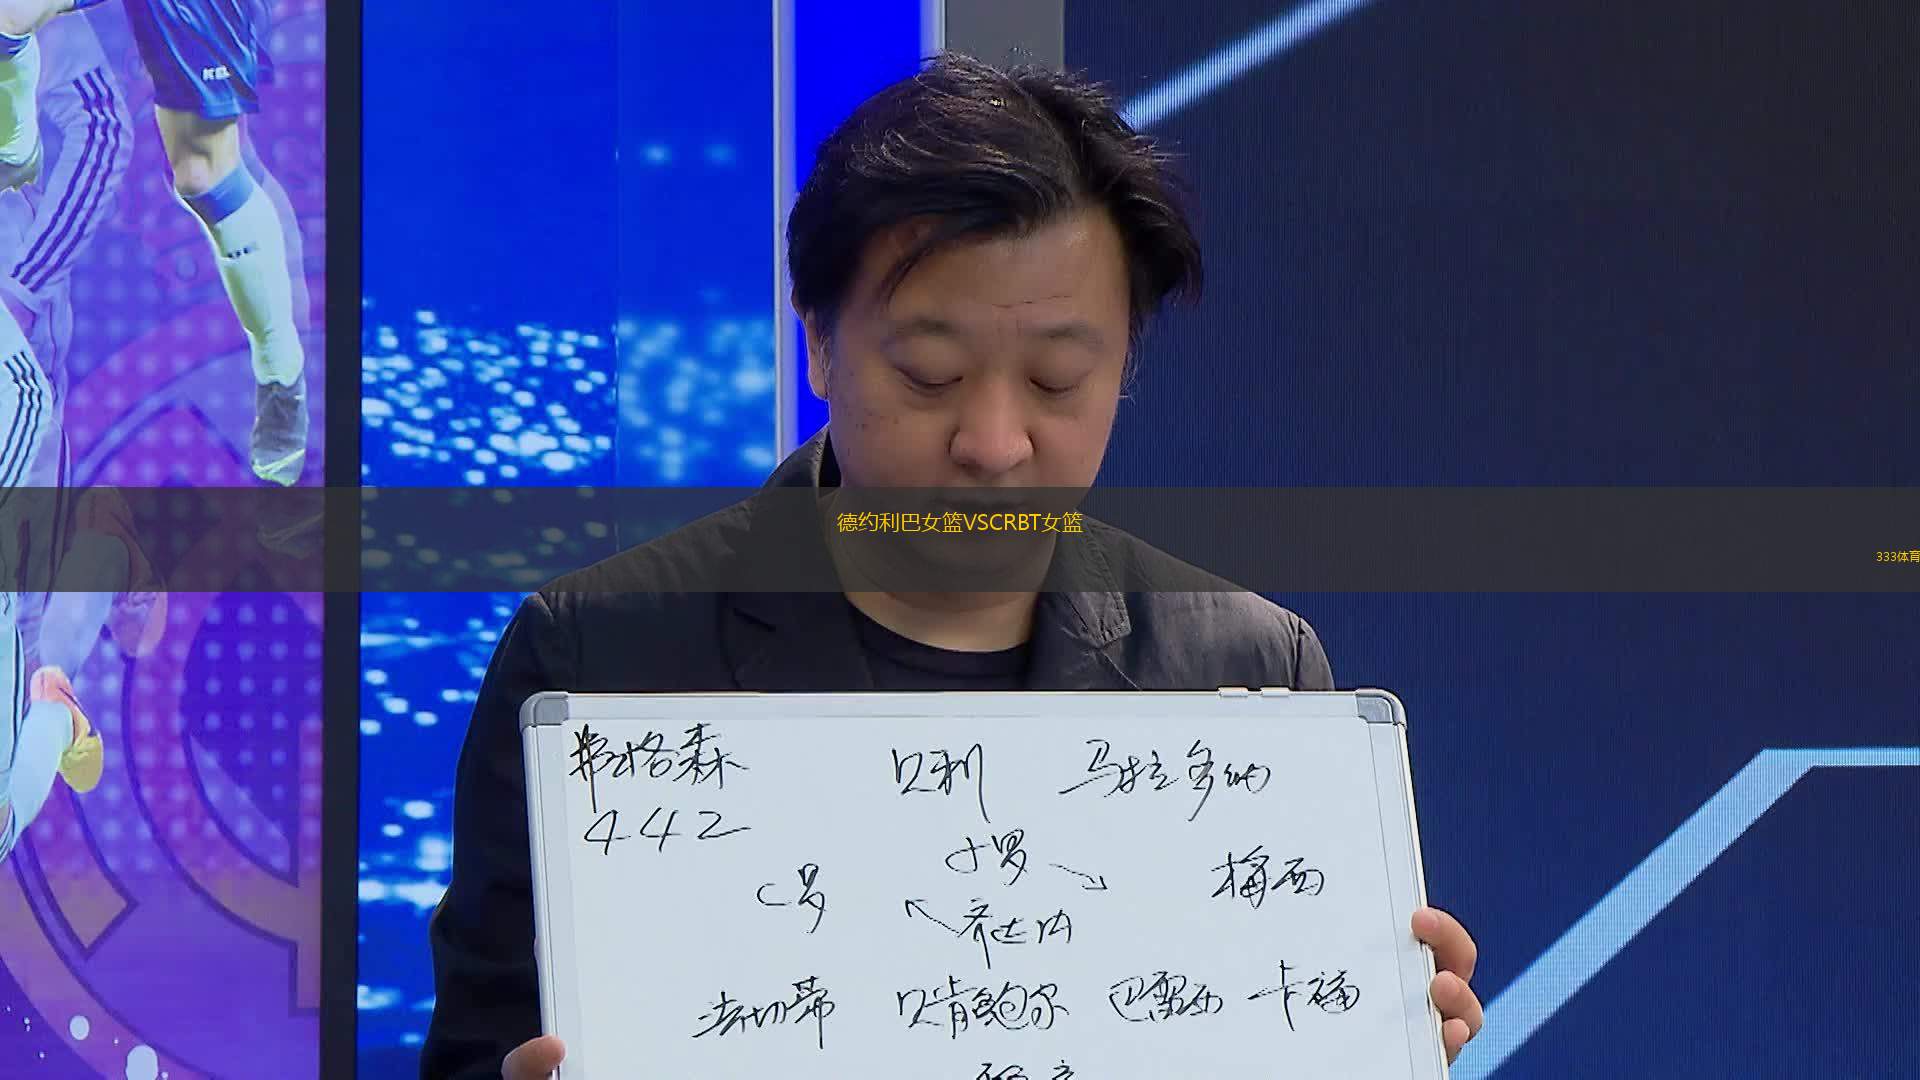 德约利巴女篮VSCRBT女篮
333体育
弗格森 贝利 马拉多纳
442
小罗
C罗 梅西
齐达内
法切蒂 贝肯鲍尔 巴雷西 卡福